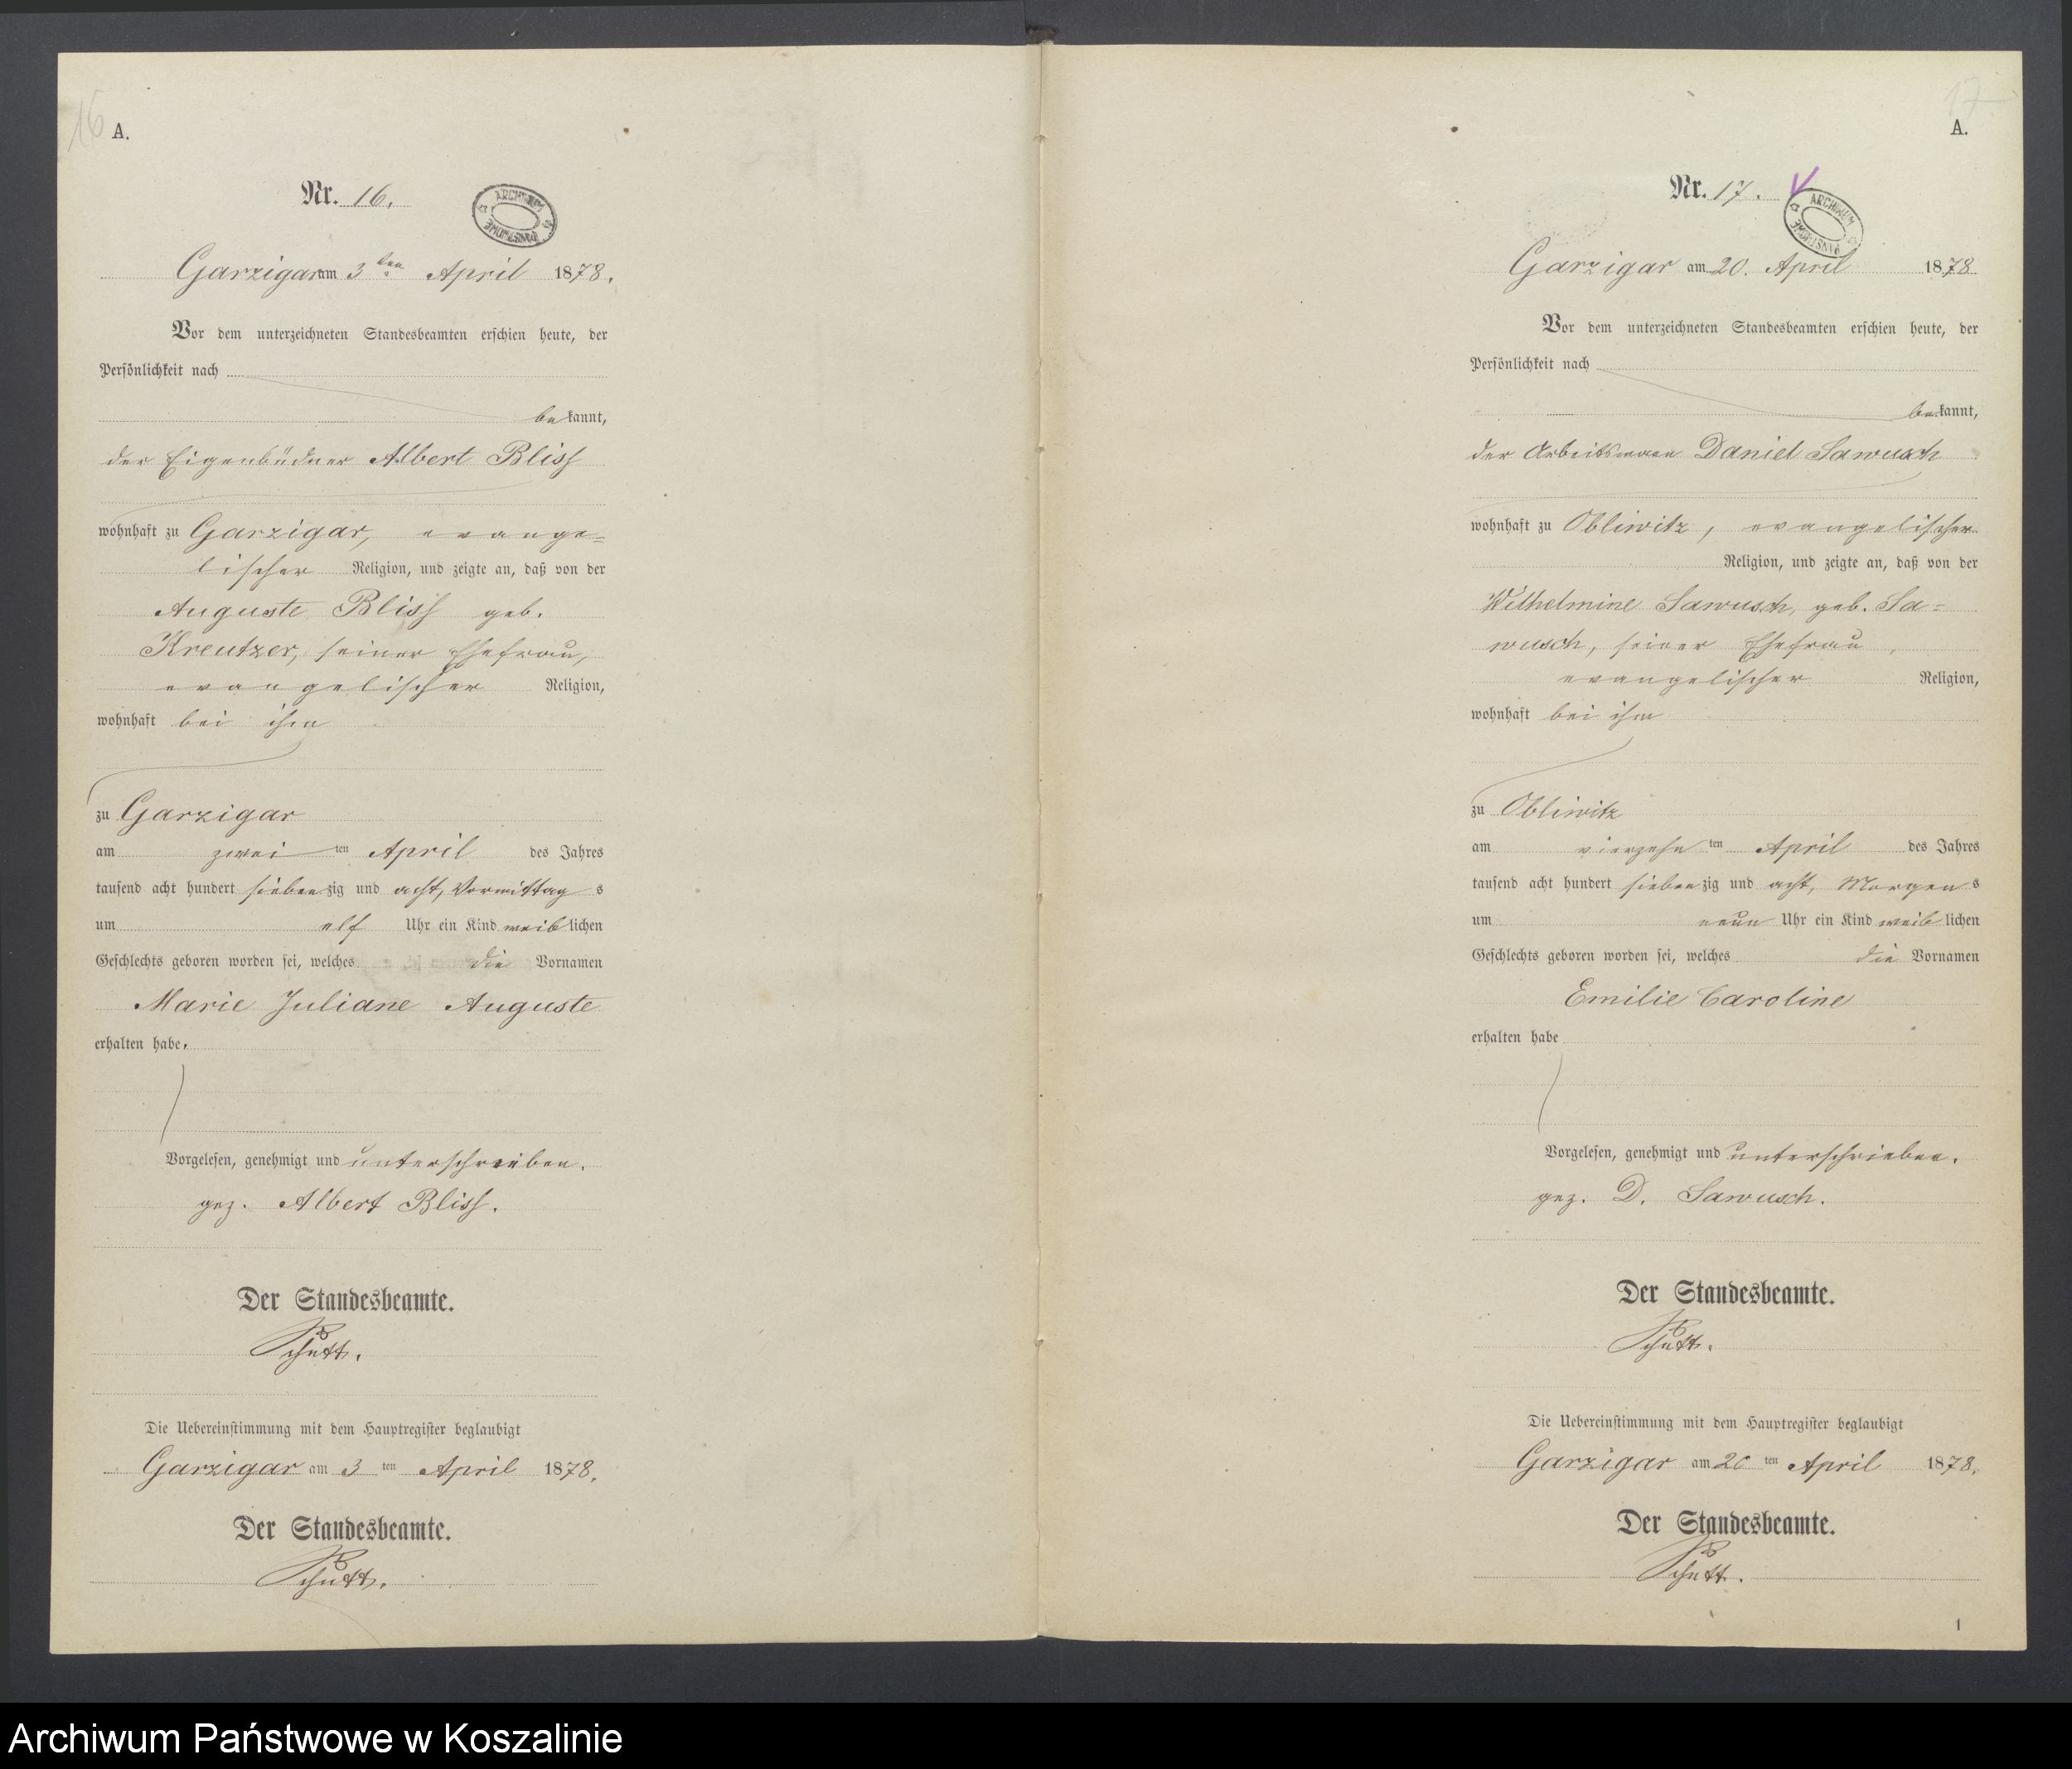 16
A.
Nr. 16.
ARCHIWUM PAŃSTWOWE
Garzigar am 3ten April 1878.
Vor dem unterzeichneten Standesbeamten erschien heute, der
Persönlichkeit nach
bekannt,
der Eigenbüdner Albert Bliss
wohnhaft zu Garzigar, evange=
lischer Religion, und zeigte an, daß von der
Auguste Bliss geb.
Kreutzer, seiner Ehefrau,
evangelischer Religion,
wohnhaft bei ihm
zu Garzigar
am zweiten April des Jahres
tausend acht hundert siebenzig und acht, Vormittags
um elf Uhr ein Kind weiblichen
Geschlechts geboren worden sei, welches die Vornamen
Marie Juliane Auguste
erhalten habe.
Vorgelesen, genehmigt und unterschrieben.
gez. Albert Bliss.
Der Standesbeamte.
Schütt.
Die Uebereinstimmung mit dem Hauptregister beglaubigt
Garzigar am 3ten April 1878.
Der Standesbeamte.
Schütt.
17
A.
Nr. 17.
ARCHIWUM PAŃSTWOWE
Garzigar am 20. April 1878
Vor dem unterzeichneten Standesbeamten erschien heute, der
Persönlichkeit nach
bekannt,
der Arbeitsmann Daniel Sawusch
wohnhaft zu Obliwitz, evangelischer
Religion, und zeigte an, daß von der
Wilhelmine Sawusch, geb. Sa=
wusch, seiner Ehefrau,
evangelischer Religion,
wohnhaft bei ihm
zu Obliwitz
am vierzehnten April des Jahres
tausend acht hundert siebenzig und acht, Morgens
um neun Uhr ein Kind weiblichen
Geschlechts geboren worden sei, welches die Vornamen
Emilie Caroline
erhalten habe
Vorgelesen, genehmigt und unterschrieben.
gez. D. Sawusch.
Der Standesbeamte.
Schütt.
Die Uebereinstimmung mit dem Hauptregister beglaubigt
Garzigar am 20ten April 1878.
Der Standesbeamte.
Schütt.
1
Archiwum Państwowe w Koszalinie